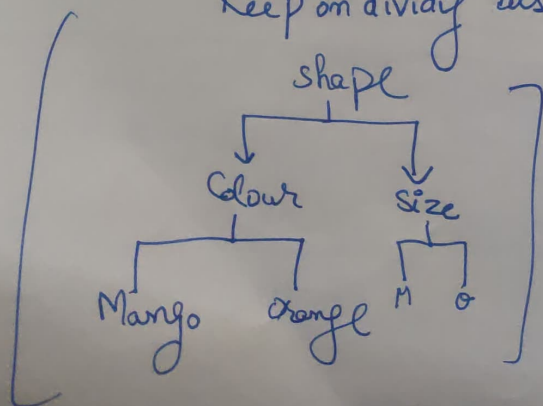 Keep on dividy
shape
Colour size
Mango Orange M O